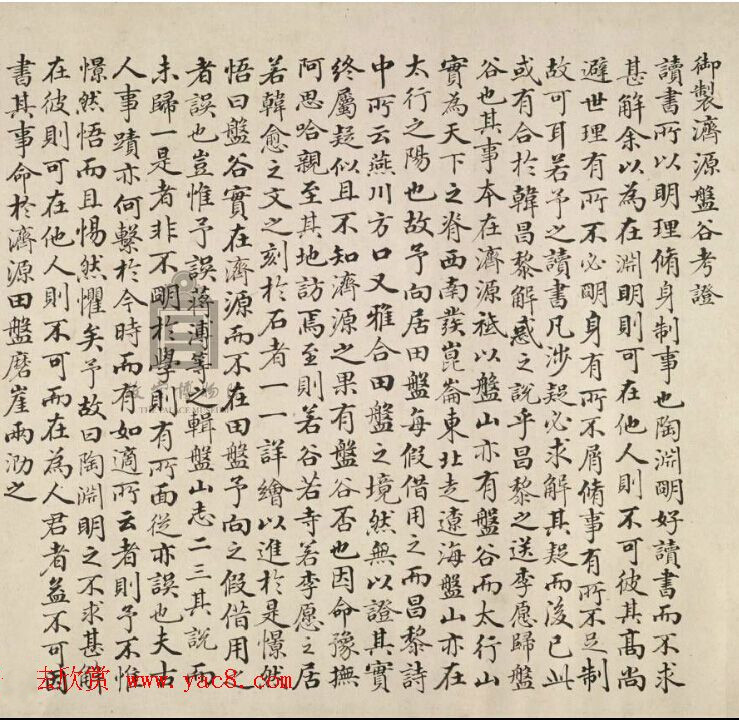 御製濟源盤谷考證
讀書所以明理脩身制事也陶淵明好讀書而不求
甚解余以為在淵明則可在他人則不可彼其高尚
避世理有所不必明身有所不屑脩事有所不足制
故可耳若予之讀書凡涉疑必求解其疑而後已此
或有合於韓昌黎解惑之說乎昌黎之送李愿歸盤
谷也其事本在濟源祗以盤山亦有盤谷而太行山
實為天下之脊西南發崑崙東北走遼海盤山亦在
太行之陽也故予向居田盤每假借用之而昌黎詩
中所云燕川方口又雅合田盤之境然無以證其實
終屬疑似且不知濟源之果有盤谷否也因命豫撫
阿思哈親至其地訪焉至則若谷若寺若李愿之居
若韓愈之文之刻於石者一一詳繪以進於是憬然
悟曰盤谷實在濟源而不在田盤予向之假借用之
者誤也豈惟予誤蔣溥等之輯盤山志二三其說而
未歸一是者非不明於學則有所面從亦誤也夫古
人事蹟亦何繫於今時而有如適所云者則予不惟
憬然悟而且惕然懼矣予故曰陶淵明之不求甚解
在彼則可在他人則不可而在為人君者益不可因
書其事命於濟源田盤磨崖兩泐之
THE PALACE MUSEUM
去欣赏 www.yac8.com